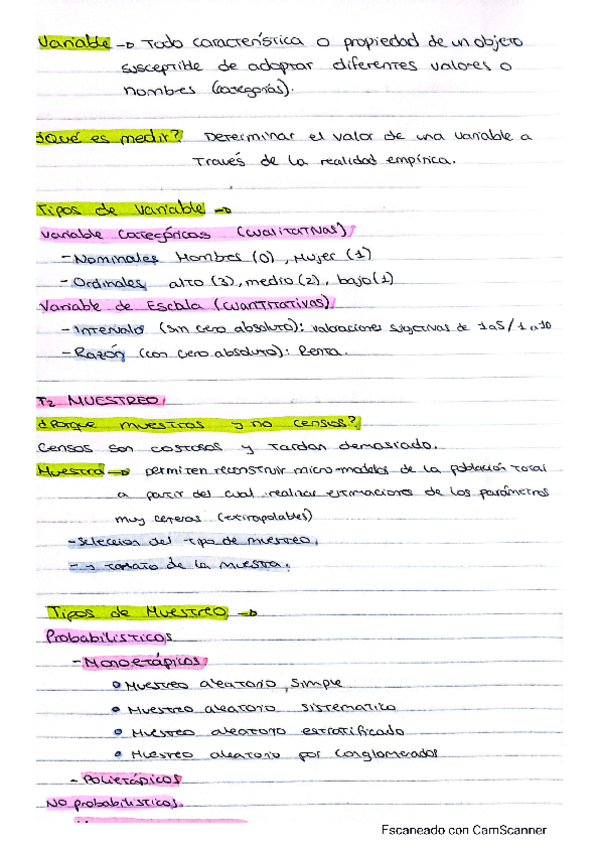 Variable → Toda característica o propiedad de un objeto
susceptible de adoptar diferentes valores o
nombres (categorías).
¿Qué es medir? Determinar el valor de una variable a
través de la realidad empírica.
Tipos de variable →
Variable categóricas (cualitativas)
- Nominales Hombres (0), Mujer (1)
- Ordinales alto (3), medio (2), bajo (1)
Variable de Escala (cuantitativas)
- Intervalo (sin cero absoluto): valoraciones subjetivas de 1 a 5 / 1 a 10
- Razón (con cero absoluto): Renta.
T2 MUESTREO
¿Porque muestras y no censos?
Censos son costosos y tardan demasiado.
Muestra → permiten reconstruir micro-modelos de la población total
a partir del cual realizar estimaciones de los parámetros
muy certeras (extrapolables)
- Selección del tipo de muestreo.
- → tamaño de la muestra.
Tipos de Muestreo →
Probabilísticos
- Monoetápicos
• Muestreo aleatorio simple
• Muestreo aleatorio sistematico
• Muestreo aleatorio estratificado
• Muestreo aleatorio por conglomerados
- Polietápicos
No probabilisticos.
Escaneado con CamScanner